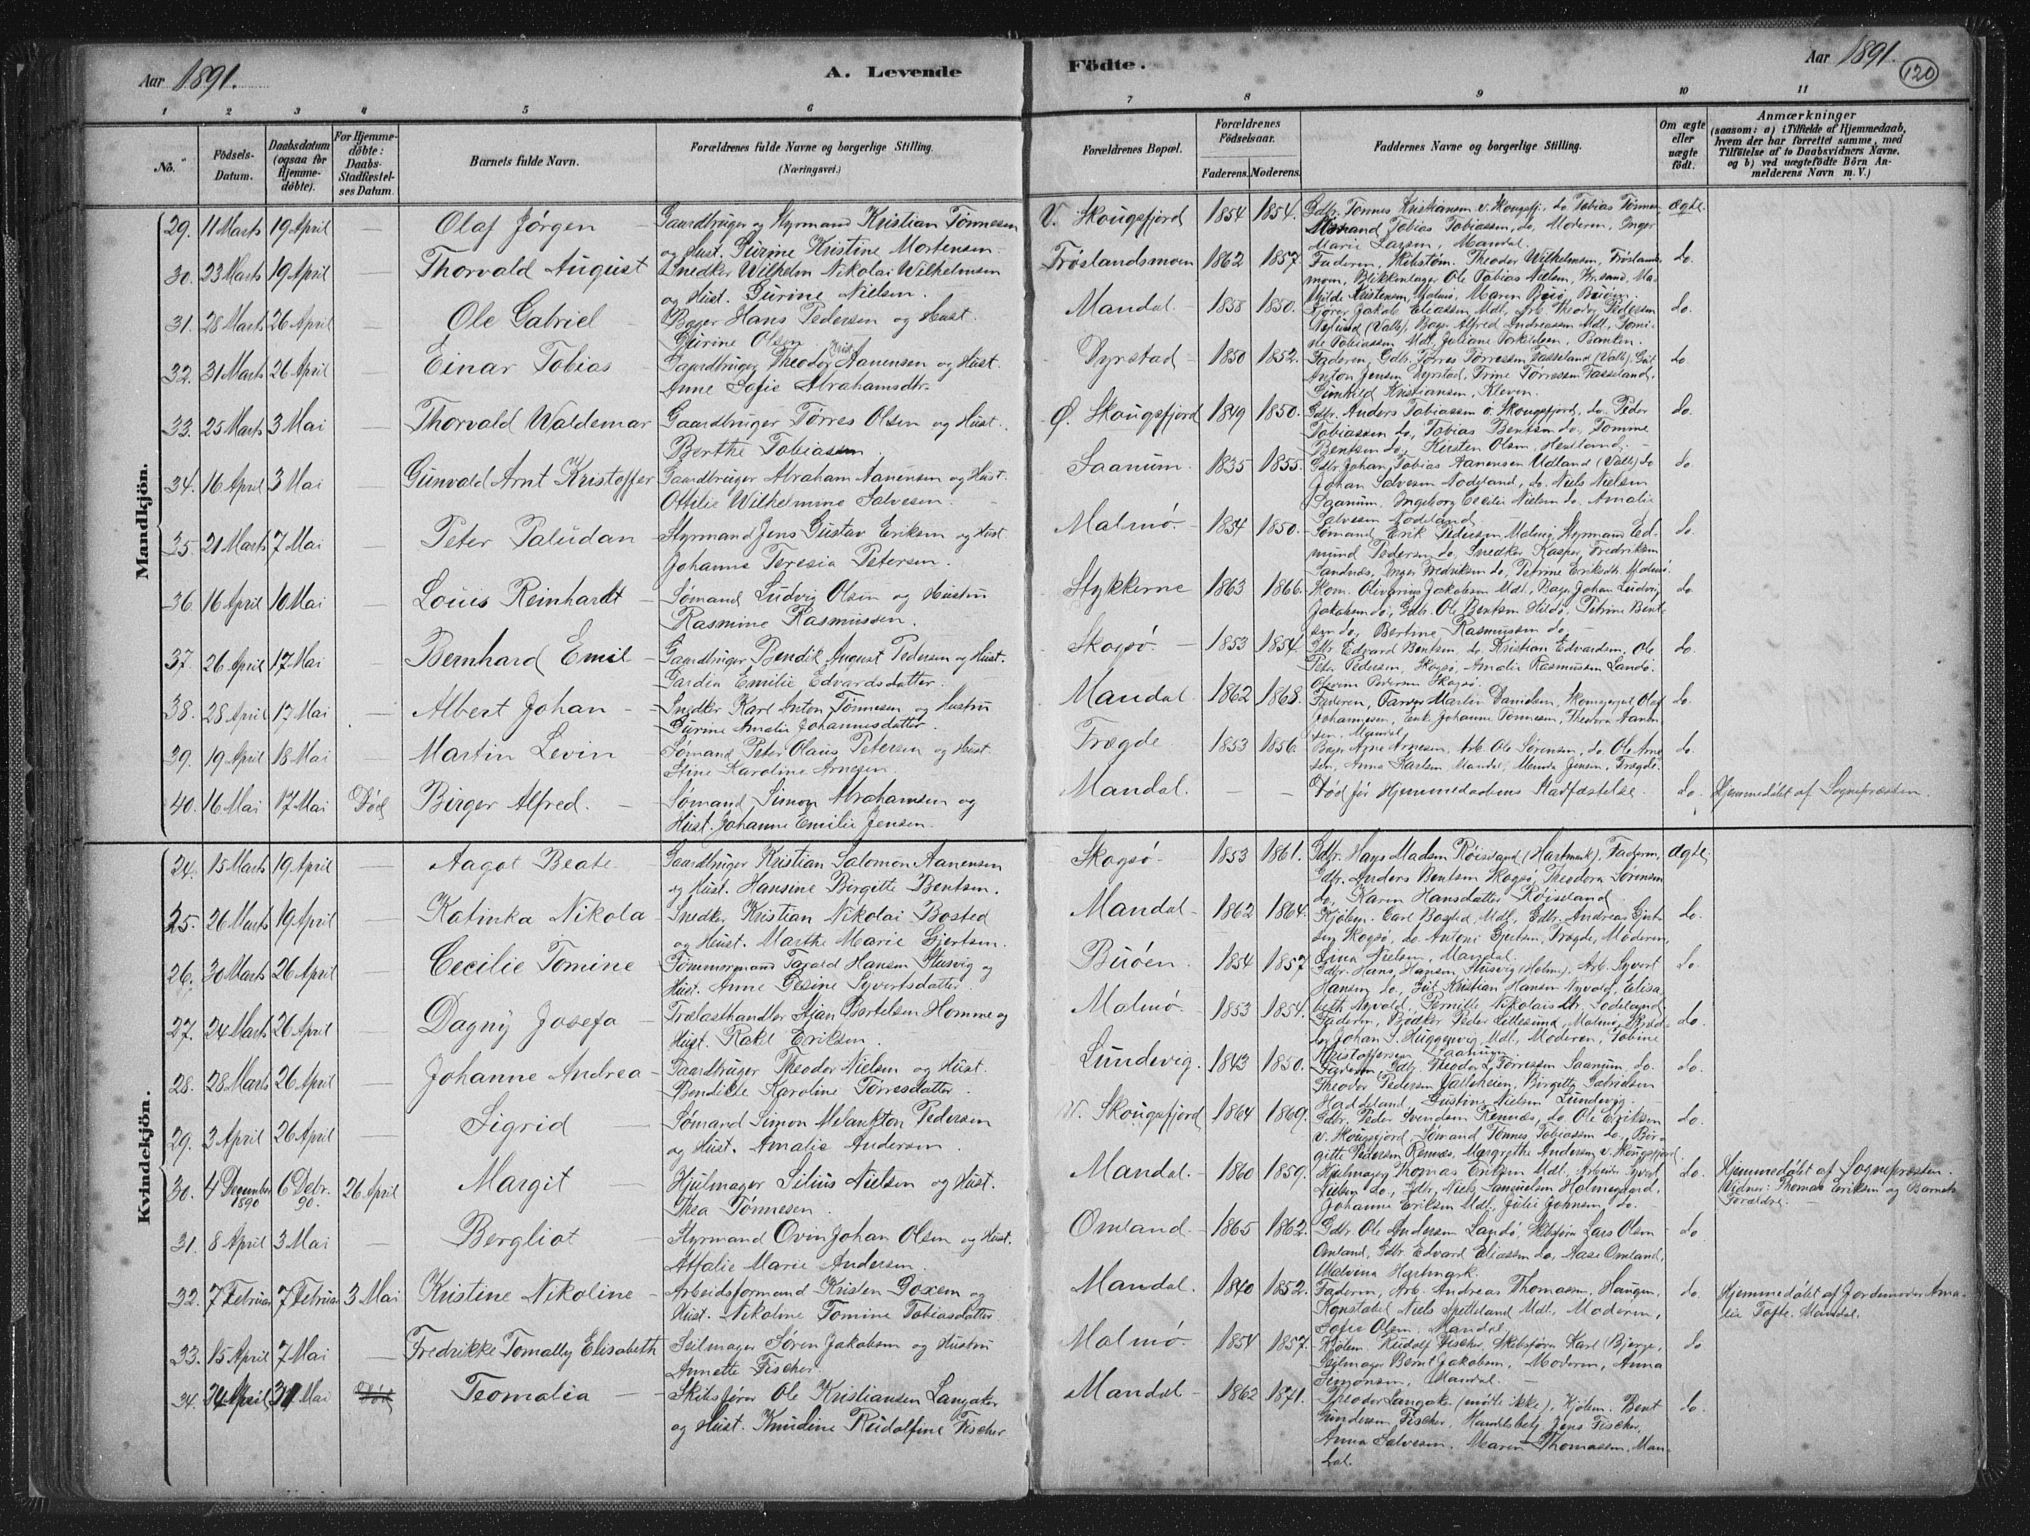 Aar 1891.
A. Levende
Födte.
Aar 1891.
120
1 2 3 4 5 6 7 8 9 10 11
No. Födsels-Datum. Daabsdatum (ogsaa for Hjemme-døbte). For Hjemme-døbte: Daabs-Stadfæstel-ses Datum. Barnets fulde Navn. Forældrenes fulde Navne og borgerlige Stilling. (Næringsvei.)
Forældrenes Bopæl. Forældrenes Födselsaar. Faderens. Moderens. Faddernes Navne og borgerlige Stilling. Om ægte eller uægte født. Anmærkninger (saasom: a) i Tilfælde af Hjemmedaab, hvem der har forrettet samme, med Tilføielse af to Daabsvidners Navne, og b) ved uægtefødte Børn An-melderens Navn m. V.)
Mandkjön.
29. 11 Marts 19 April — Olaf Jørgen — Gaardbruger og Styrmand Kristian Tønnesen
og Hust. Gurine Kristine Mortensen
V. Skougsfjord 1854 1854. Gdbr. Tønnes Kristiansen v. Skougsfj. do Tobias Tønnesen ægte.
Tobias Tobiassen, do, Moderen, Inger
Marie Larsen, Mandal.
30. 23 Marts 19 April — Thorvald August Snedker Wilhelm Nikolai Wilhelmsen
og Hust. Gurine Nielsen.
Frøslandsmoen 1862 1857. Faderen, Theodor Wilhelmsen, Frøslands-
moen, Blikkenslager Ole Tobias Nielsen, Kr.sand, Ma-
thilde Kristensen, Malmö, Maren Buö, Buöen. do.
31. 28 Marts 26 April — Ole Gabriel — Bager Hans Pedersen og Hust.
Gurine Olsen
Mandal. 1855 1850. Jakob Eliassen Mdl, Arb. Theodor Pedersen
(Valle), Bager Alfred Andreassen Mdl, Tomi-
ne Tobiassen Mdl, Juliane Torkildsen, Banken. do.
32. 31 Marts 26 April — Einar Tobias — Gaardbruger Theodor Krist. Aanensen og Hust.
Anne Sofie Abrahamsdtr.
Dyrstad 1850 1852. Faderen, Gdb. Tørres Tørressen Tasseland (Valle), Gut
Anton Jensen Dyrstad, Trine Tørressen Tasseland,
Gunhild Kristiansen, Kleven. do
33. 25 Marts 3 Mai — Thorvald Waldemar Gaardbruger Tørres Olsen og Hust.
Berthe Tobiassen
Ø. Skougsfjord 1849 1850. Gdbr. Anders Tobiassen ö. Skougsfjord, do. Peder
Tobiassen do, Tobias Bentsen do, Tomme
Bentsen do, Kirsten Olsen, do.
34. 16 April 3 Mai — Gunvald Arnt Kristoffer Gaardbruger Abraham Aanensen og Hust.
Ottilie Wilhelmine Salvesen
Saanum. 1835 1855. Gdbr. Johan Tobias Aanensen Udland (Valle) do
Johan Salvesen Nodeland, do. Niels Nielsen
Saanum, Ingeborg Cecilie Nielsen do, Amalie
Salvesen Nodeland. do.
35. 21 Marts 7 Mai — Peter Paludan Styrmand Jens Gustav Eriksen og Hust.
Johanne Teresia Petersen.
Malmö. 1854 1850. Sømand Erik Pedersen Malmö, Styrmand Ed-
mund Pedersen do, Snedker Kasper Fredriksen
Sandnæs, Inger Fredriksen do, Petrine Eriksdtr. Malmö. do.
36. 16 April 10 Mai — Louis Reinhardt — Sømand Ludvig Olsen og Hustru
Rasmine Rasmussen.
Stykkerne 1863 1866. Skom. Olivarius Jakobsen Mdl, Bager Johan Ludvig
Jakobsen do, Gdb. Ole Bentsen Hildø, Petrine Bent-
sen do, Bertine Rasmussen do — do.
37. 26 April 17 Mai Bernhard Emil — Gaardbruger Bendik August Pedersen og Hust.
Gardea Emilie Edvardsdatter.
Skogsø. 1853 1854. Gdbr. Edvard Bentsen, do. Kristian Edvardsen, Ole
Peter Pedersen, Skogsø, Amalie Rasmussen Landö,
Olevine Pedersen Skogsø. do.
38. 28 April 17 Mai . Albert Johan — Snedker Karl Anton Tønnesen og Hustru
Gurine Amalie Johannesdatter.
Mandal 1862 1868. Faderen, Farver Martin Danielsen, Skomagergut Olaf
Johannesen, Enke Johanne Tønnesen, Theodora Aanen-
sen, Mandal. do.
39. 19 April 18 Mai Martin Levin — Sømand Peter Olaus Petersen og Hust.
Stine Karoline Arnesen.
Frægde 1853 1856. Bager Arne Arnesen, Arb. Ole Sörensen, do. Ole Arne-
sen, Anna Karlsen Mandal, Jensen, Frægde. do.
40. 16 Mai 17 Mai Død Birger Alfred. — Sømand Simon Abrahamsen og
Hust. Johanne Emilie Jensen.
Mandal. — — Død før Hjemmedaabens Stadfæstelse. do. Hjemmedøbt af Sognepræsten.
Kvindekjön.
24. 15 Marts 19 April — Aagot Beate Gaardbruger Kristian Salomon Aanensen
og Hust. Hansine Birgitte Bentsen.
Skogsö. 1853 1861. Gdbr. Hans Madsen Röiseland (Hartmark), Faderen, Ægte.
Gdbr. Anders Bentsen Skogsø, Theodora Sørensen
do, Karen Hansdatter Röiseland.
25. 26 Marts 19 April — Katinka Nikola Snedker Kristian Nikolai Bosted
og Hust. Marthe Marie Gjertsen.
Mandal. 1862 1864. Kjöbm. Carl Bosted, Mdl, Gdbr. Andreas Gjert-
sen Skogsø, do. Antoni Gjertsen, Frægde, Moderen,
Lina Nielsen, Mandal. do.
26. 30 Marts 26 April — Cecilie Tomine Tømmermand Tarald Hansen Stusvig og
Hust. Anne Gesine Syvertsdatter.
Buöen. 1854 1857 Gdbr. Hans Hansen Stusvig (Holm), Arb. Syvert
Hansen do, Gut Kristian Hansen Nyvold, Elisa-
beth Nyvold, Pernille Nikolaisdtr. do.
27. 24 Marts 26 April — Dagny Josefa — Trælasthandler Stian Bertelsen Homme og
Hust. Rakel Eriksen.
Malmö. 1853 1854. Faderen, Bødker Peter Lillesund, Malmö,
Johan S. Mdl, Moderen, Tobine
Kristoffersen Saanum. do.
28. 28 Marts 26 April — Johanne Andrea — Gaardbruger Theodor Nielsen og Hust.
Bendikte Karoline Tørresdatter.
Lundevig. 1843 1850. Faderen, Gdb. Theodor L. Tørressen Saanum, do.
Theodor Pedersen Valleheien, Birgitte Gabrielsen
Haddeland, Gustine Nielsen Lundevig. do.
29. 3 April 26 April — Sigrid — Sømand Simon Melankton Pedersen
og Hust. Amalie Andersen.
V. Skougsfjord 1864 1869. Gdbr. Peder Svendsen Rennæs, do Ole Eriksen
v. Skougsfjord, Sømand Tønnes Tobiassen do, Bir-
gitte Pedersen Rennæs, Margrethe Andersen v. Skougsfjord. do.
30. 4 December 1890 6 Debr. 90. 26 April Margit — Hjulmager Silius Nielsen og Hust.
Thea Tønnesen.
Mandal. 1860 1859. Hjulmager Thomas Eriksen Mdl, Arbeider Syvert
Nielsen do, Gdbr. Niels Samuelsen Holmegaard,
Johanne Eriksen Mdl, Julie Johnsen, do. — do. Hjemmedøbt af Sognepræsten.
Vidner: Thomas Eriksen og Barnets
Forældre. —
31. 8 April 3 Mai — Bergliot — Styrmand Ovin Johan Olsen og Hust.
Attalie Marie Andersen.
Omland. 1865 1862. Gdbr Ole Andersen Landö, Skibsførn Lars Olsen
Omland, Gdbr Edvard Eliassen do, Aase Omland,
Malvina Hartmark. do
32. 7 Februar 7 Februar 3 Mai Kristine Nikoline — Arbeidsformand Kristen Goxem og
Hust. Nikoline Tomine Tobiasdatter.
Mandal. 1840 1852. Faderen, Arb. Andreas Thomassen, Haugen,
Konstabel Niels Spetteland Mdl, Moderen,
Sofie Olsen, Mandal. do. Hjemmedøbt af Jordemoder Ama-
lie Tofte, Mandal.
33. 15 April 7 Mai — Fredrikke Tomally Elisabeth Seilmager Sören Jakobsen og Hustru
Annette Fischer.
Malmö. 1854 1857. Kjøbm. Rudolf Fischer, Skibsförn Karl Bjerge,
Seilmager Bernt Jakobsen, Moderen, Anna
Simonsen, Mandal. — do.
34. 24 April 31 Mai Død Teomalia — Skibsfører Ole Kristiansen Langaker
og Hust. Knudine Rudolfine Fischer
Mandal 1862 1871. Theodor Langaker (mötte ikke), Kjøbm. Bent
Gundersen Fischer, Handelsbetj. Jens Fischer,
Anna Salvesen, Maren Thomassen, Man-
dal. do.